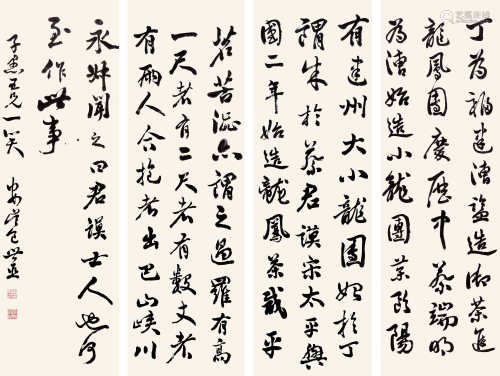 丁為福建漕監造御茶進
龍鳳團慶歷中蔡端明
為漕始造小龍團茶歐陽
有建州大小龍團始於丁
謂成於蔡君謨宋太平興
國二年始造龍鳳茶哉平
茗苦澀亦謂之過羅有高
一尺者有二尺者有數丈者
有兩人合抱者出巴山峽川
永叔聞之曰君謨士人也何
至作此事
子惠兄一笑 安吳包世臣